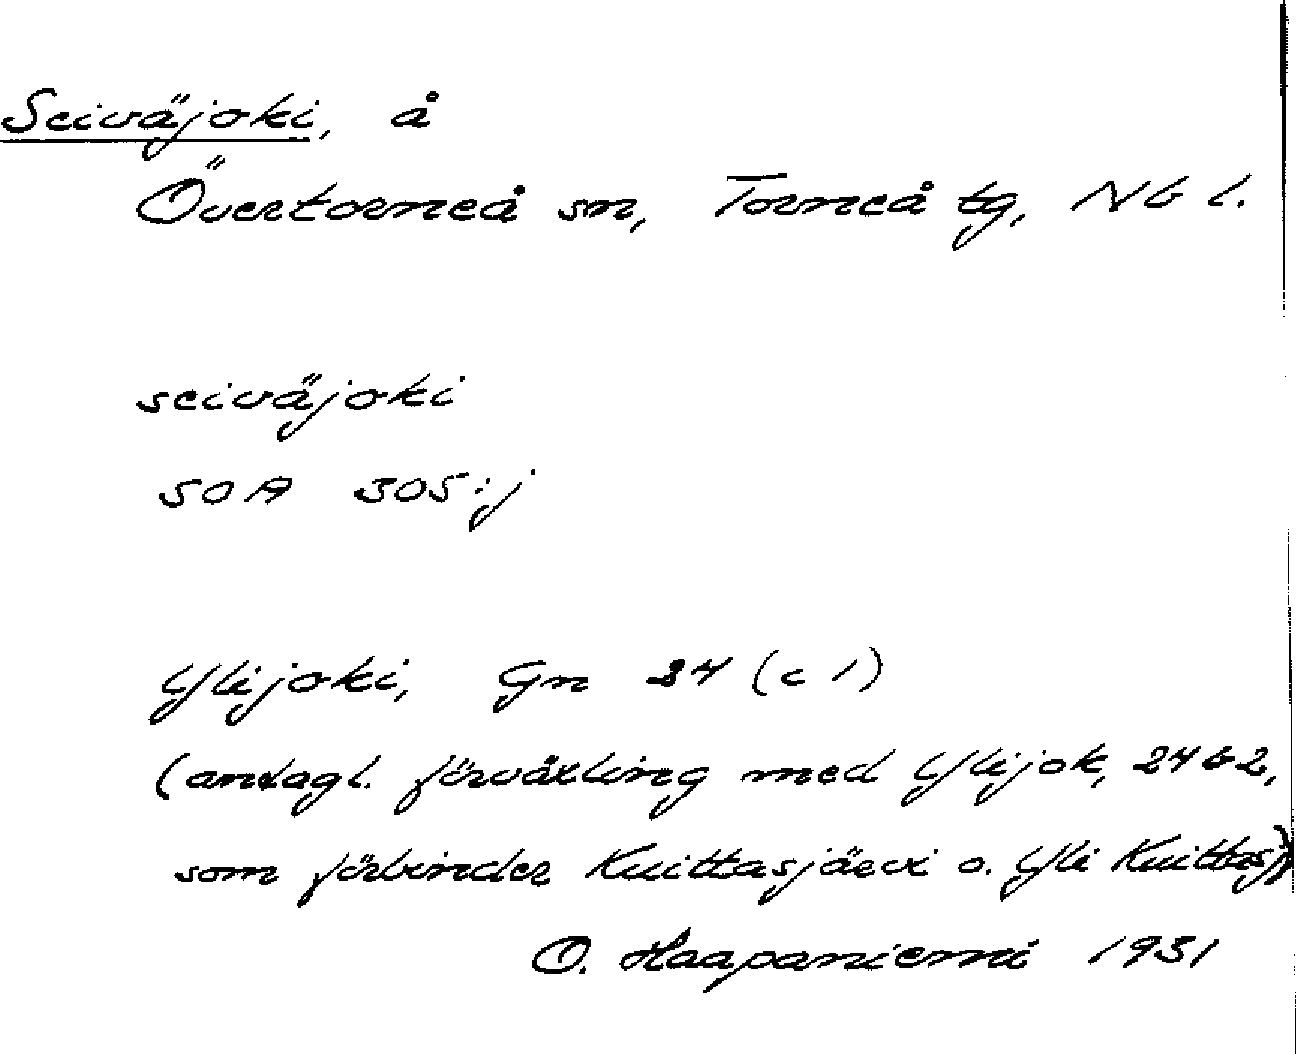 Seiväjoki, å
Övertorneå sn, Torneå tg, Nb l.
seiväjoki
SOA 305:j
Ylijoki, Gn 24 (c 1)
(antagl. förväxling med Ylijok, 24 b 2,
som förbinder Kuittasjärvi o. Yli Kuittasj)
O. Haapaniemi 1931